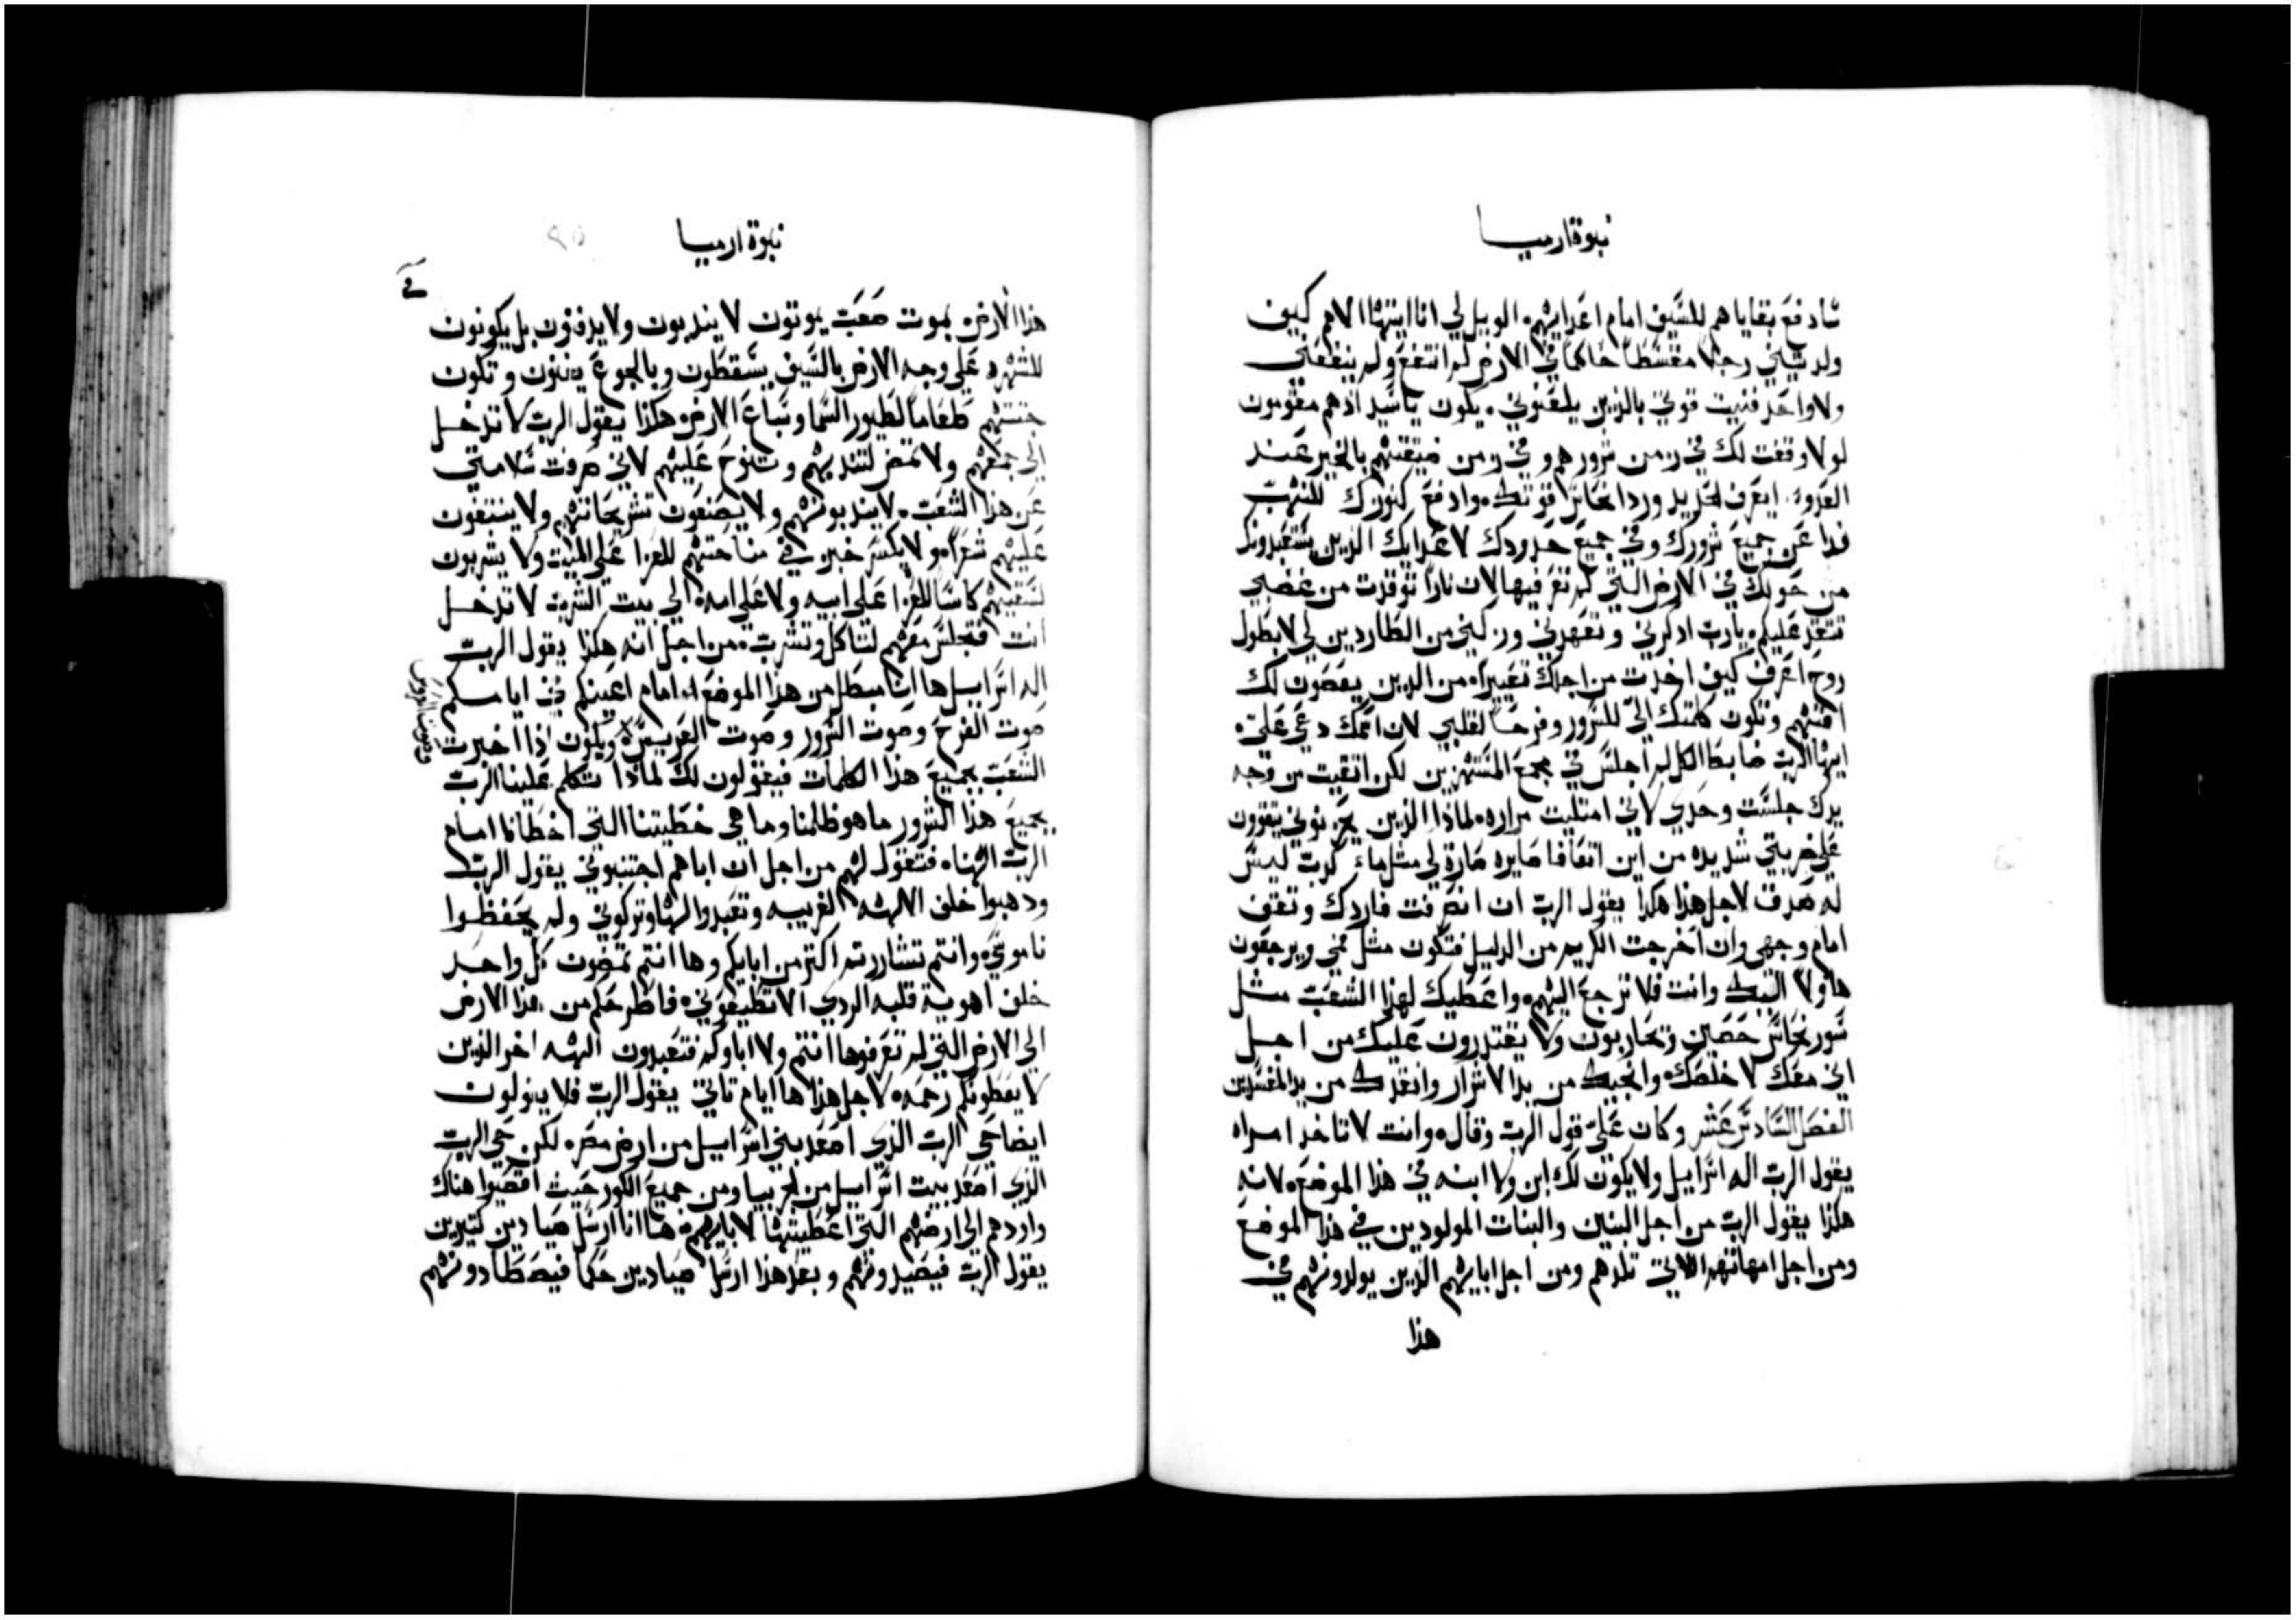 نبوة ارميا
سادفع بقاياهم للسيف امام اعدايهم الويل لي انا ايتها الام كيف
ولدتيني رجلا مقسطا حاكما في الارض لم انتفع ولم ينفعني
ولا واحد فنيت قوتي بالذين يلعنوني يكون ياسيد اذهم مقومون
لولا وقفت لك في زمن شرورهم وفي زمن ضيقتهم بالخير عند
العدو ايعرف الحديد وردا نحاس قوتك وادفع كنوزك للنهب
فدا عن جميع شرورك وفي جميع حدودك لاعدايك الذين يستعبدونك
من حولك في الارض التي لم تعرفيها لان نارا توقدت من غضبي
تتقد عليكم يارب اذكرني وتعهدني وزكيني من الطاردين لي لا بطول
روح اعرف كيف اخدت من اجلك تعييرا من الدين يعصون لك
افنيهم وتكون كلمتك الي للسرور وفرحا لقلبي لان اسمك دعي علي
ايها الرب ضابط الكل لم اجلس في مجمع المستهزين لكن اتقيت من وجه
يدك جلست وحدي لاني امتليت مراره لماذا الذين يحزنوني يقوون
علي ضربتي شديده من اين اتفافا صايره صارة لي مثل ماء كدب ليس
له صدق لاجل هذا هكذا يقول الرب ان انصرفت فاردك وتقف
امام وجهي وان اخرجت الكريم من الدليل فتكون مثل فمي ويرجعون
هاولا اليك وانت فلا ترجع اليهم واعطيك لهذا الشعب مثل
سور نحاس حصين وتحاربون ولا يقتدرون عليك من اجل
اني معك لاخلصك وانجيك من يد الاشرار وانقدك من يد المفسدين
الفصل السادس عشر وكان علي قول الرب وقال وانت لا تاخد امراه
يقول الرب اله اسراييل ولا يكون لك ابن ولا ابنه في هذا الموضع لانه
هكذا يقول الرب من اجل البنين والبنات المولودين في هذا الموضع
ومن اجل امهاتهم اللاتي تلدهم ومن اجل ابايهم الذين يولدونهم في
هذا
نبوة ارميا
هذا الارض بموت صعب يموتون لا يندبون ولا يدفنون بل يكونون
للشهره علي وجه الارض بالسيف يسقطون وبالجوع يفنون وتكون
جثتهم طعاما لطيور السما وسباع الارض هكذا يقول الرب لا تدخل
الي جمعهم ولا تمض لتندبهم وتنوح عليهم لاني صرفت سلامتي
عن هذا الشعب لا يندبونهم ولا يصنعون تشريحاتهم ولا ينتفون
عليهم شعرا ولا يكسر خبز في مناحتهم للعزا علي الميت ولا يشربون
لسقيهم كاسا للعزا علي ابيه ولا علي امه الي بيت الشرب لا تدخل
انت فتجلس معهم لتاكل وتشرب من اجل انه هكذا يقول الرب
اله اسراييل ها انا مبطل من هذا الموضع امام اعينكم في ايامكم
صوت الفرح وصوت السرور وصوت العريس ويكون اذا اخبرت
وصوت العروس
الشعب بجميع هذا الكلمات فيقولون لك لماذا تكلم علينا الرب
بجميع هذا الشرور ما هو ظلمنا وما هي خطيتنا التي اخطانا امام
الرب الهنا فتقول لهم من اجل ان اباهم اجتنبوني يقول الرب
ودهبوا خلف الالهه الغريبه وتعبدوا لها وتركوني ولم يحفظوا
ناموسي وانتم تشاررتم اكتر من ابايكم وها انتم تمضون كل واحد
خلف اهوية قلبه الردي الا تطيعوني فاطرحكم من هذا الارض
الي الارض التي لم تعرفوها انتم ولا اباوكم فتعبدون الهه اخر الذين
لا يعطونكم رحمه لاجل هذا ها ايام تاتي يقول الرب فلا يقولون
ايضا حي الرب الذي اصعد بني اسراييل من ارض مصر لكن حي الرب
الذي اصعد بيت اسراييل من الجربيا ومن جميع الكور حيث اقصيوا هناك
واردهم الي ارضهم التي اعطيتها لابايهم ها انا ارسل صيادين كتيرين
يقول الرب فيصيدونهم وبعد هذا ارسل صيادين حكما فيصطادونهم